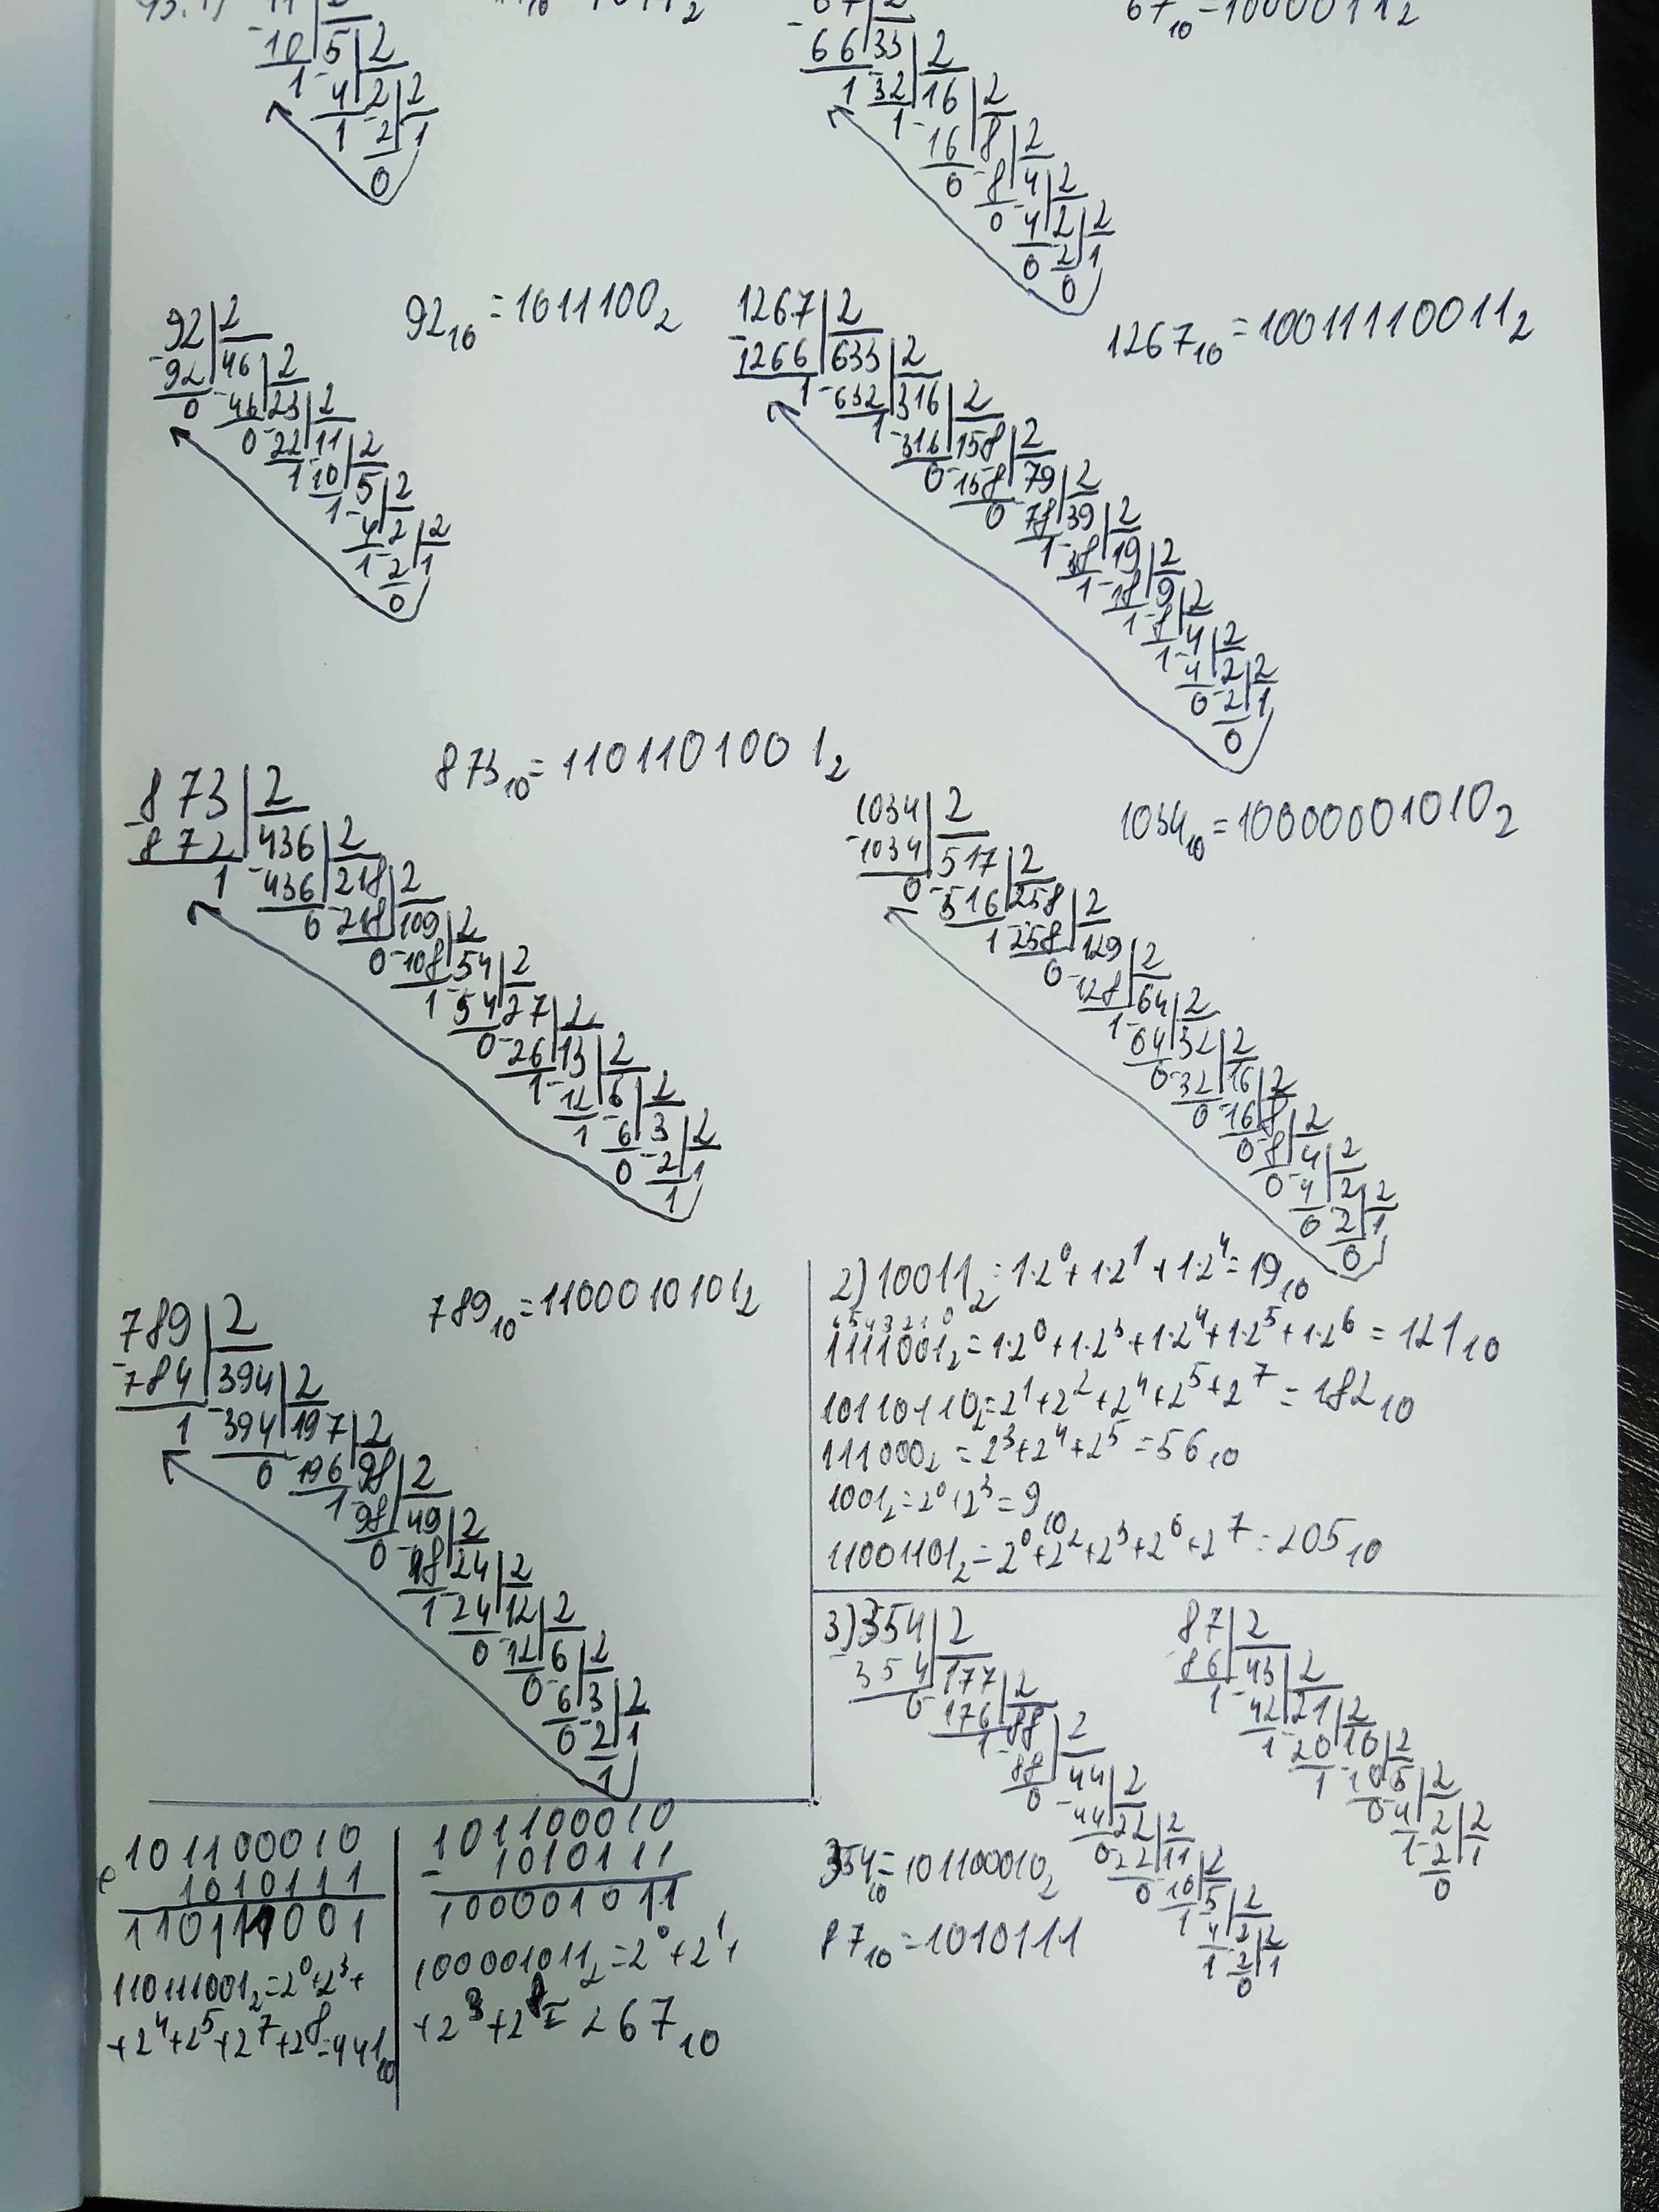 11|2
-10|5|2 1011₂ 66|33|2 67₁₀=1000011₂
1-4|2|2 1-32|16|2
1-2|1 1-16|8|2
0 0-8|4|2
0-4|2|2
0-2|1
0
92|2 92₁₀=1011100₂
-92|46|2
0-46|23|2
0-22|11|2
1-10|5|2
1-4|2|2
1-2|1
0
1267|2 1267₁₀=10011110011₂
-1266|633|2
1-632|316|2
1-316|158|2
0-158|79|2
0-78|39|2
1-38|19|2
1-18|9|2
1-8|4|2
1-4|2|2
0-2|1
0
873|2 873₁₀=1101101001₂
-872|436|2
1-436|218|2
0-218|109|2
0-108|54|2
1-54|27|2
0-26|13|2
1-12|6|2
1-6|3|2
0-2|1
1
1034|2 1034₁₀=10000001010₂
-1034|517|2
0-516|258|2
1-258|129|2
0-128|64|2
1-64|32|2
0-32|16|2
0-16|8|2
0-8|4|2
0-4|2|2
0-2|1
0
789|2 789₁₀=1100010101₂
-784|394|2
1-394|197|2
0-196|98|2
1-98|49|2
0-48|24|2
1-24|12|2
0-12|6|2
0-6|3|2
0-2|1
1
2) 10011₂=1·2⁰+1·2¹+1·2⁴=19₁₀
6543210
1111001₂=1·2⁰+1·2³+1·2⁴+1·2⁵+1·2⁶=121₁₀
10110110₂=2¹+2²+2⁴+2⁵+2⁷=182₁₀
111000₂=2³+2⁴+2⁵=56₁₀
1001₂=2⁰+2³=9₁₀
11001101₂=2⁰+2²+2³+2⁶+2⁷=205₁₀
3) 354|2
-354|177|2
0-176|88|2
1-88|44|2
0-44|22|2
0-22|11|2
0-10|5|2
1-4|2|2
1-2|1
0
87|2
-86|43|2
1-42|21|2
1-20|10|2
1-10|5|2
0-4|2|2
1-2|1
0
354₁₀=101100010₂
87₁₀=1010111
101100010
1010111
110111001
110111001₂=2⁰+2³+
+2⁴+2⁵+2⁷+2⁸=441₁₀
101100010
- 1010111
100001011
100001011₂=2⁰+2¹+
+2³+2⁸=267₁₀